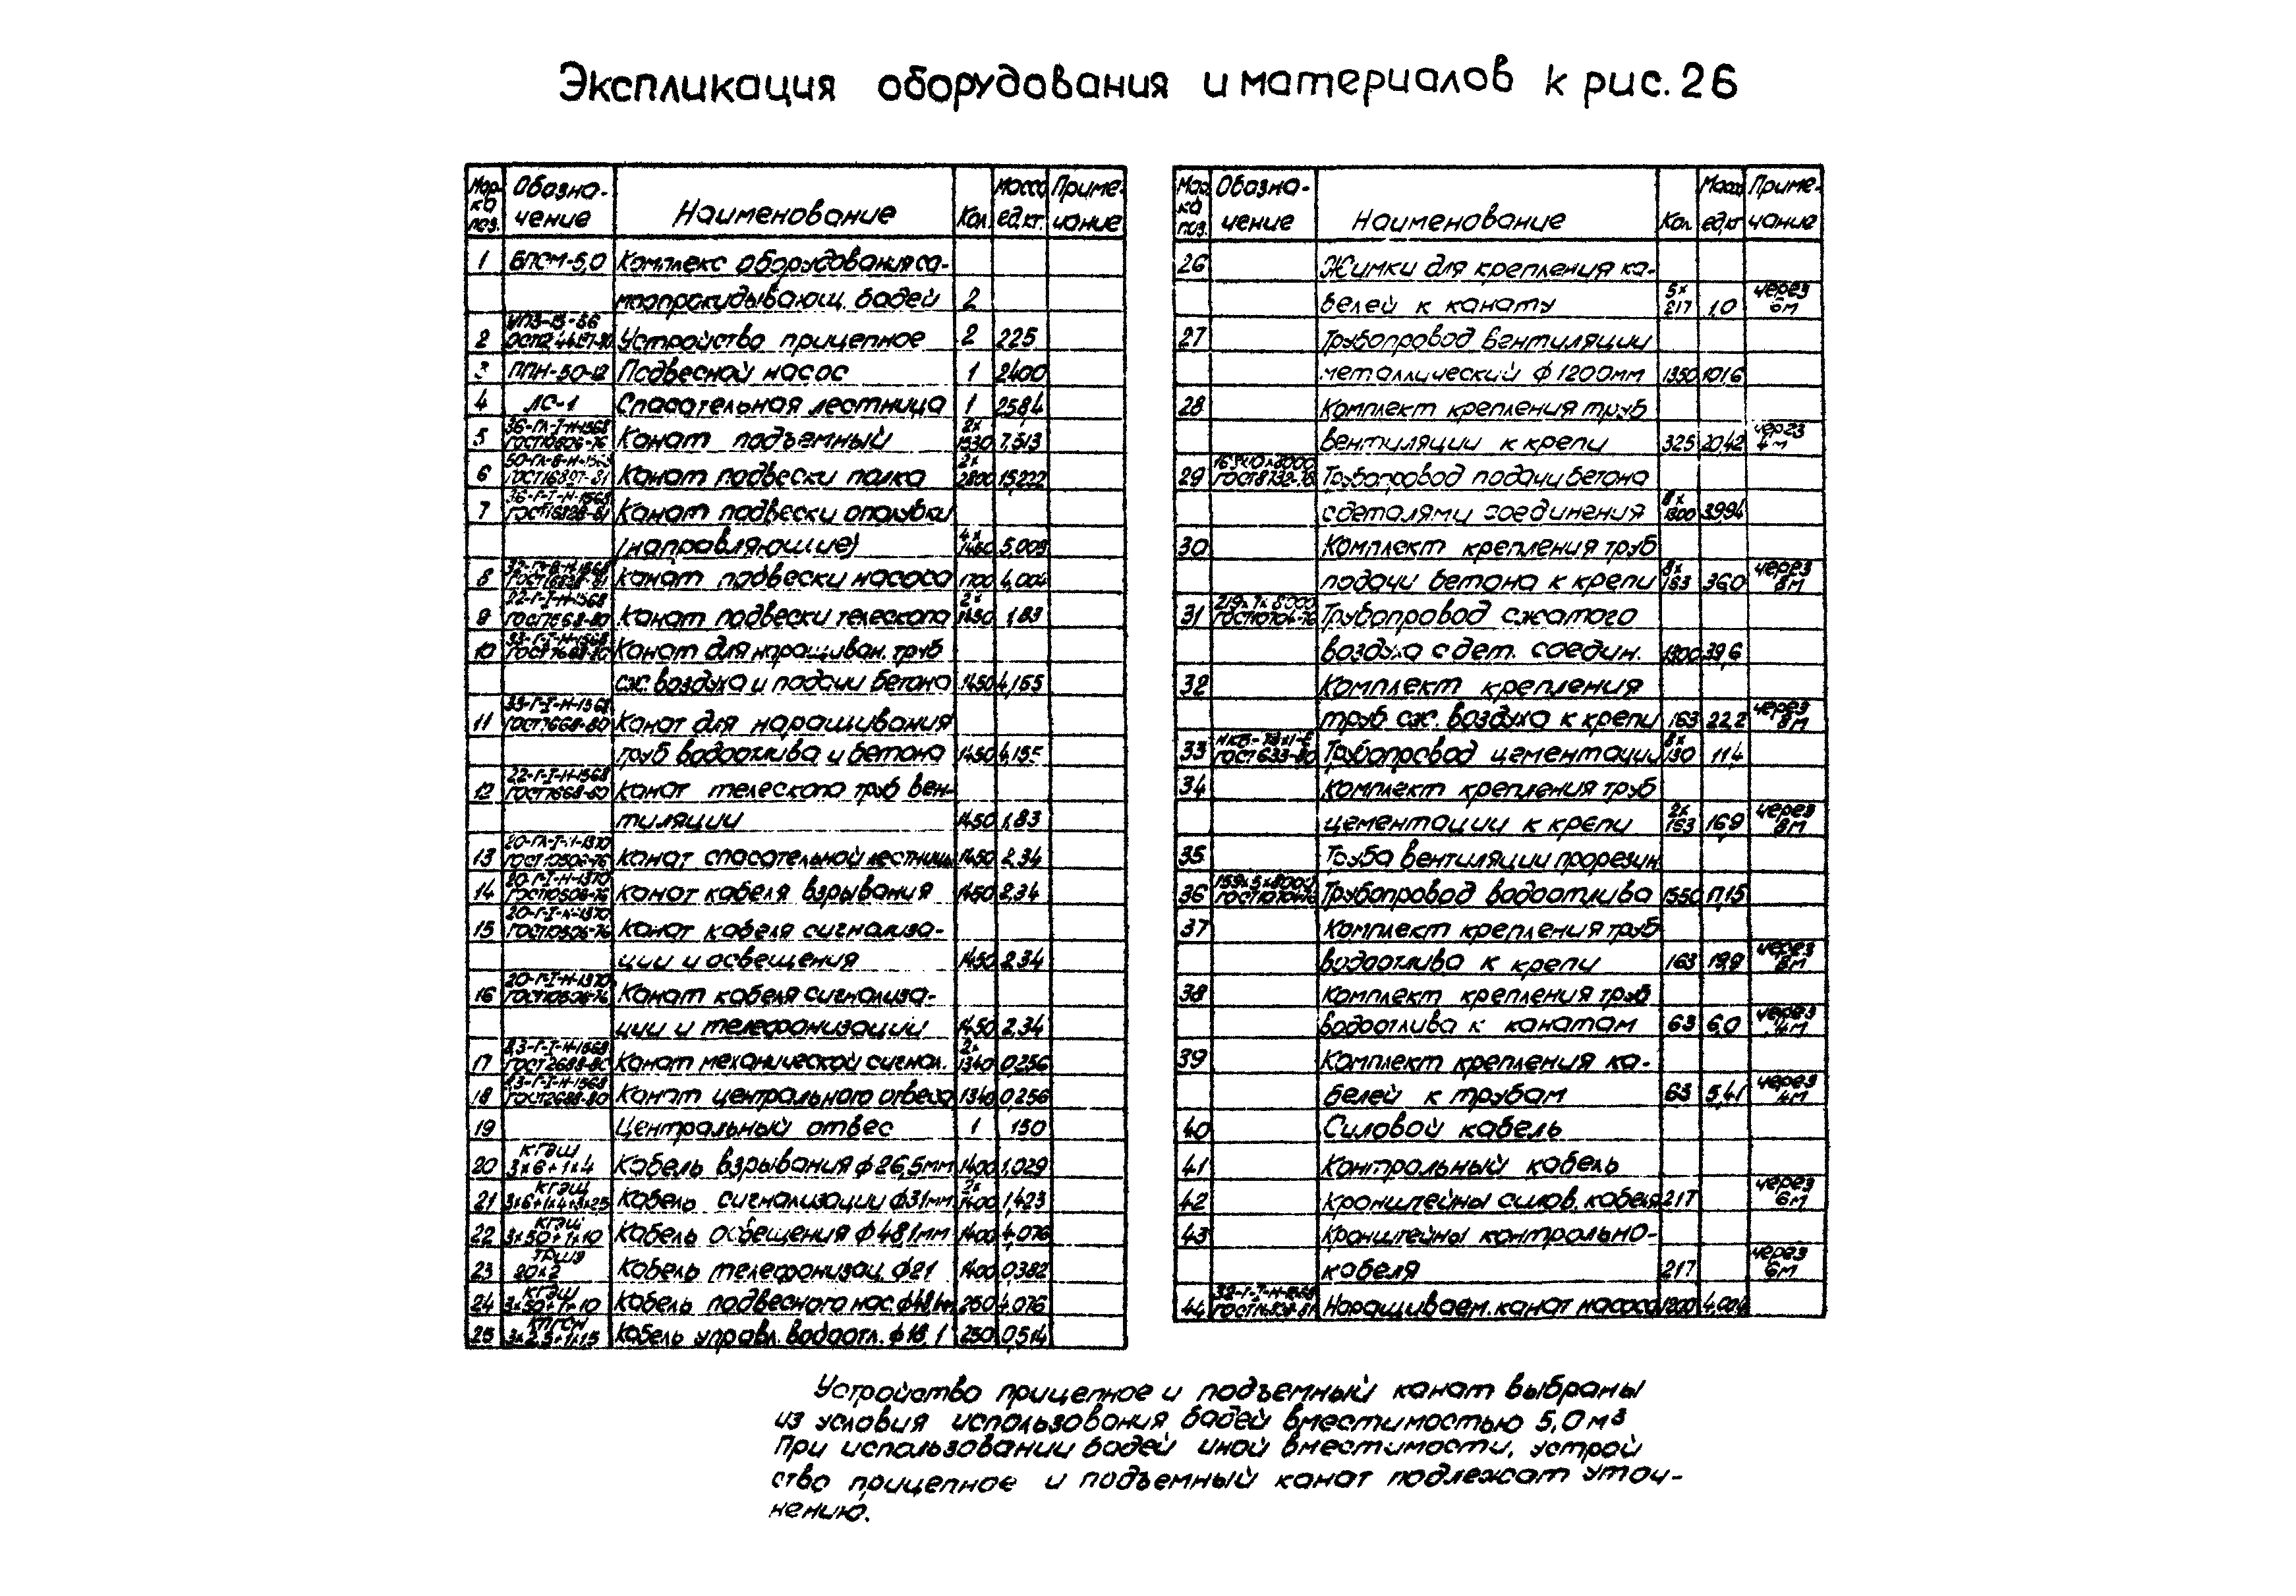 Экспликация оборудования и материалов к рис. 26
Мар- Обозна- Масса Приме-
ка Наименование Кол.
поз. чение ед.кг. чание
1 БПСМ-5,0 Комплекс оборудования са-
моопрокидывающ. бадей 2
2 Устройство прицепное 2 225
3 ППН-50-12 Подвесной насос 1 2400
4 ЛС-1 Спасательная лестница 1 2584
36-ГЛ-I-Н-1568 2х
5 ГОСТ10506-76 Канат подъемный 1530 7,313
50-ГЛ-В-Н-1568 2х
6 Канат подвески полка 2800 15,222
36-Г-I-Н-1568
7 ГОСТ16828-81 Канат подвески опалубки
4х
(направляющие) 1460 5,009
8 Канат подвески насоса 1700 4,004
22-Г-I-Н-1568 2х
9 ГОСТ7668-80 Канат подвески телескопа 1450 1,83
33-Г-I-Н-1568
10 ГОСТ7668-80 Канат для наращиван. труб
сж. воздуха и подачи бетона 1450 4,155
33-Г-I-Н-1568
11 ГОСТ7668-80 Канат для наращивания
труб водоотлива и бетона 1450 4,155
22-Г-I-Н-1568
12 ГОСТ7668-80 Канат телескопа труб вен-
тиляции 1450 1,83
20-ГЛ-I-Н-1370
13 ГОСТ10506-76 Канат спасательной лестницы 1450 2,34
20-Г-I-Н-1370
14 ГОСТ10506-76 Канат кабеля взрывания 1450 2,34
20-Г-I-Н-1370
15 ГОСТ10506-76 Канат кабеля сигнализа-
ции и освещения 1450 2,34
20-Г-I-Н-1370
16 ГОСТ10506-76 Канат кабеля сигнализа-
ции и телефонизации 1450 2,34
8,3-Г-I-Н-1568 2х
17 ГОСТ2688-80 Канат механической сигнал. 1340 0,256
8,3-Г-I-Н-1568
18 ГОСТ2688-80 Канат центрального отвеса 1340 0,256
19 Центральный отвес 1 150
КГЭШ
20 3х6+1х4 Кабель взрывания ф26,5мм 1400 1,029
КГЭШ 2х
21 3х6+1х4+3х2,5 Кабель сигнализации ф31мм 1400 1,423
КГЭШ
22 3х50+1х10 Кабель освещения ф48,1мм 1400 4,076
23 20х2 Кабель телефонизац. ф21 1400 0,382
КГЭШ
24 3х50+1х10 Кабель подвесного нас. ф48,1мм 250 4,076
25 3х2,5+1х1,5 Кабель управл. водоотл. ф18,1 250 0,514
Мар- Обозна- Масса Приме-
ка Наименование Кол.
поз. чение ед.кг чание
26 Жимки для крепления ка-
5х через
белей к канату 217 1,0 6м
27 Трубопровод вентиляции
металлический ф1200мм 1350 101,6
28 Комплект крепления труб
через
вентиляции к крепи 325 20,42 4м
29 ГОСТ8732-78 Трубопровод подачи бетона
8х
с деталями соединения 1300 39,94
30 Комплект крепления труб
8х через
подачи бетона к крепи 163 36,0 8м
219х7х8000
31 ГОСТ10704-76 Трубопровод сжатого
воздуха с дет. соедин. 1300 39,6
32 Комплект крепления
через
труб сж. воздуха к крепи 163 22,2 8м
8х
33 ГОСТ633-80 Трубопровод цементации 130 11,4
34 Комплект крепления труб
2х через
цементации к крепи 163 16,9 8м
35 Труба вентиляции прорезин.
159х5х8000
36 ГОСТ10704-76 Трубопровод водоотлива 1550 17,15
37 Комплект крепления труб
через
водоотлива к крепи 163 19,9 8м
38 Комплект крепления труб
через
водоотлива к канатам 63 6,0 4м
39 Комплект крепления ка-
через
белей к трубам 63 5,41 4м
40 Силовой кабель
41 Контрольный кабель
через
42 Кронштейны силов. кабеля 217 6м
43 Кронштейны контрольно-
через
кабеля 217 6м
32-Г-I-Н-1568
44 Наращиваем. канат насоса 1200 4,004
Устройство прицепное и подъемный канат выбраны
из условия использования бадей вместимостью 5,0 м³
При использовании бадей иной вместимости, устрой
ство прицепное и подъемный канат подлежат уточ-
нению.